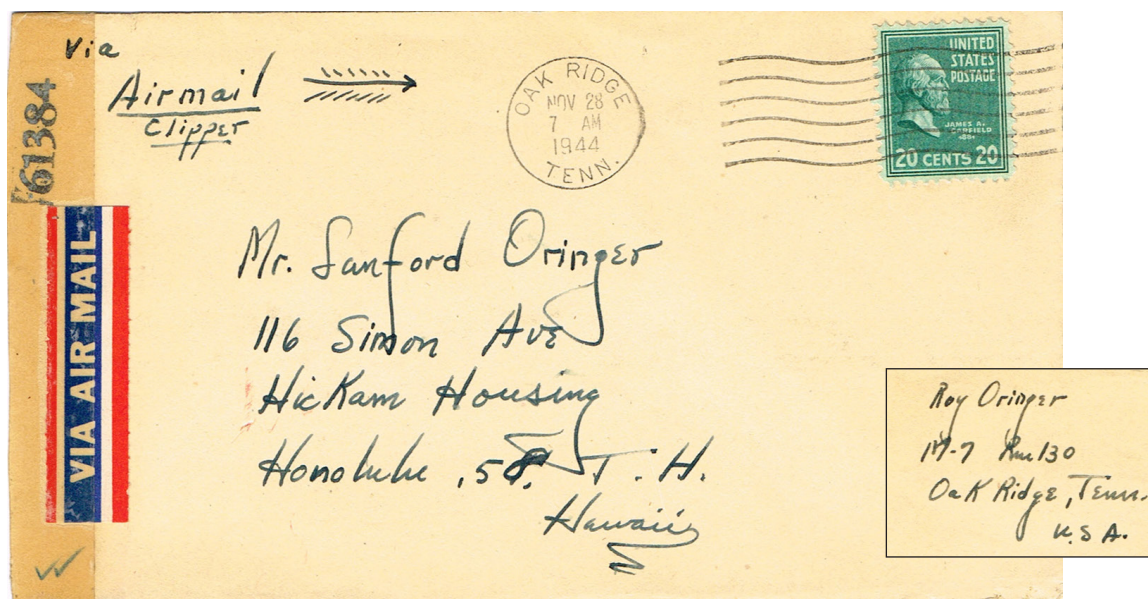 Via
Airmail
Clipper
61384
VIA AIR MAIL
OAK RIDGE
NOV 28
7 AM
1944
TENN.
UNITED
STATES
POSTAGE
JAMES A.
GARFIELD
20 CENTS 20
Mr. Sanford Oringer
116 Simon Ave
Hickam Housing
Honolulu, 58, T.H.
Hawaii
Roy Oringer
M-7 Rm 130
Oak Ridge, Tenn.
U.S.A.